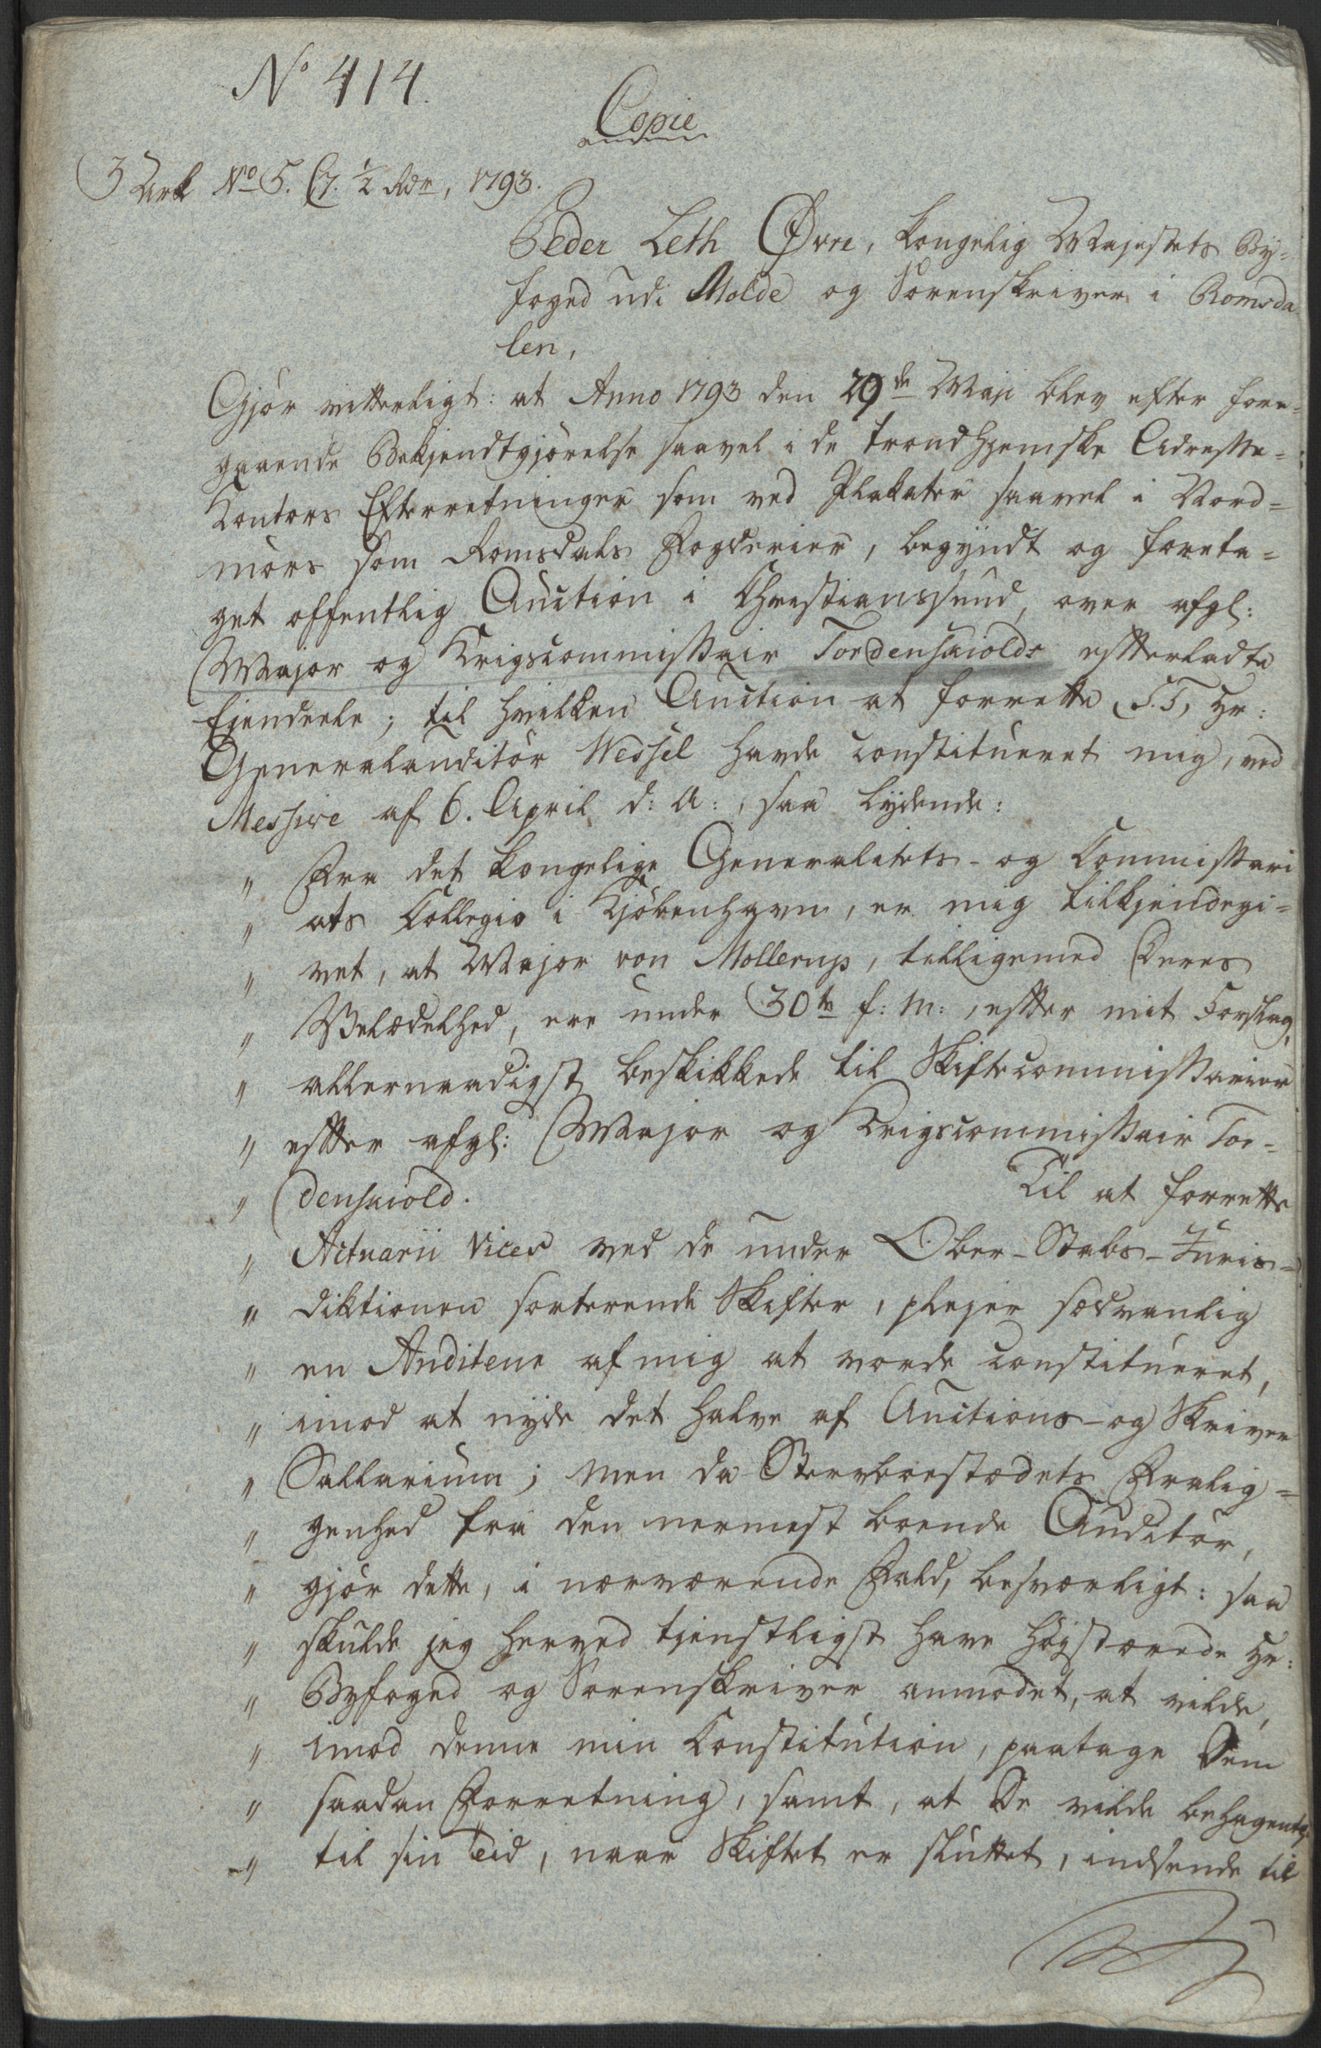 No 414.
Copie
3 Ark No 5. C. 7. ½ Rdr, 1793.
Peder Leth Øvre, Kongelig Majestets By-
foged udi Molde og Sorenskriver i Romsda
len,
Gjör vitterligt: at Anno 1793 den 29de Maji blev efter fore-
gaaende Bekjendtgjörelse saavel i de trondhjemske Adresse-
Contors Efterretninger som ved Plakater saavel i Nord-
mörs som Romsdals Fogderier, begyndt og foreta-
get offentlig Auction i Christianssund, over afgl:
Major og Krigscommissair Tordenskiolds efterladte
Ejendeele; til hvilken Auction at forrette S. T, Hr:
Generalauditör Wessel havde constitueret mig, ved
Messive af 6. April d: A:, saa lydende:
" Fra det kongelige Generalitets- og Commissari
" ats Collegio i Kjöbenhavn, er mig tilkjendegi-
" vet, at Major von Mollerup, tilligemed Deres
" Velædelhed, ere under 30te f: M:, efter mit Forslag,
" allernaadigst beskikkede til Skiftecommissarier
" efter afgl: Major og Krigscommissair Tor-
" denskiold. Til at forrette
" Actuarii Vices ved de under Ober-Stabs-Juris-
" diktionen sorterende Skifter, plejer sædvanlig
" en Auditeur af mig at vorde constitueret,
" imod at nyde det halve af Auctions- og Skriver
" Sallarium; men da Stervboestædets Fralig-
" genhed fra den nermest boende Auditör,
" gjör dette, i nærværende Fald, besværligt: saa
" skulde jeg herved tjenstligst have högstærede Hr:
" Byfoged og Sorenskriver anmodet, at vilde,
" imod denne min Constitution, paatage Dem
" saadan Forretning, samt, at De vilde behagentl:
" til sin Tid, naar Skiftet er sluttet, indsende til